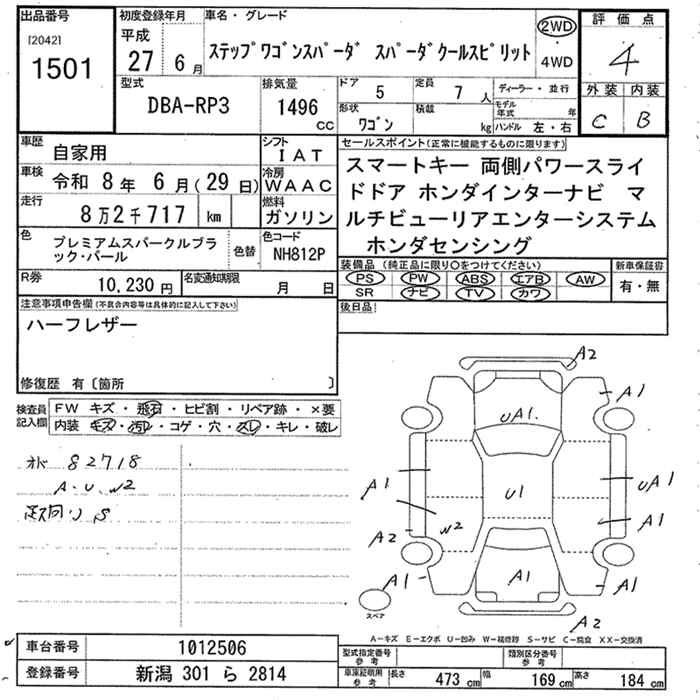 出品番号
[2042]
1501
初度登録年月
平成
27 6月
車名・グレード
ステップワゴンスパーダ スパーダクールスピリット
2WD
4WD
評価点
4
外装 内装
C B
型式
DBA-RP3
排気量
1496 CC
ドア 5
形状 ワゴン
定員 7人
積載 kg
ディーラー・並行
モデル年式 年
ハンドル 左・右
車歴 自家用
シフト IAT
車検 令和 8年 6月(29日)
冷房 WAAC
走行 8万2千717 km
燃料 ガソリン
色 プレミアムスパークルブラック・パール
色替
色コード NH812P
R券 10,230円
名変通知期限 月 日
セールスポイント(正常に機能するものに限ります)
スマートキー 両側パワースライ
ドドア ホンダインターナビ マ
ルチビューリアエンターシステム
ホンダセンシング
装備品(純正品に限り○をつけてください)
PS PW ABS エアB AW
SR ナビ TV カワ
新車保証書
有・無
後日品
注意事項申告欄(不具合内容等は具体的に記入して下さい)
ハーフレザー
修復歴 有〔箇所 〕
検査員記入欄
FW キズ・飛石・ヒビ割・リペア跡・×要
内装 キズ・汚れ・コゲ・穴・スレ・キレ・破レ
82718
A・U、W2
A2
A1
UA1.
A1
U1
UA1
A1
W2
A2
A1
A1
A1
A2
スペア
A−キズ E−エクボ U−凹み W−補修跡 S−サビ C−腐食 XX−交換済
車台番号 1012506
登録番号 新潟 301 ら 2814
型式指定番号 参考
類別区分番号 参考
車庫証明用 参考
長さ 473 cm 幅 169 cm 高さ 184 cm